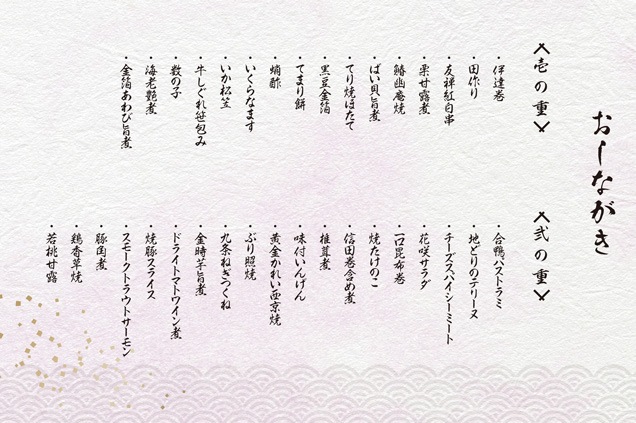 おしながき
壱の重
・伊達巻
・田作り
・友禅紅白串
・栗甘露煮
・鰆幽庵焼
・ばい貝旨煮
・てり焼ほたて
・黒豆金箔
・てまり餅
・蛸酢
・いくらなます
・いか松笠
・牛しぐれ笹包み
・数の子
・海老艶煮
・金箔あわび旨煮
弐の重
・合鴨パストラミ
・地どりのテリーヌ
・チーズスパイシーミート
・花咲サラダ
・一口昆布巻
・焼たけのこ
・信田巻含め煮
・椎茸煮
・味付いんげん
・黄金かれい西京焼
・ぶり照焼
・九条ねぎつくね
・金時芋旨煮
・ドライトマトワイン煮
・焼豚スライス
・スモークトラウトサーモン
・豚角煮
・鶏香草焼
・若桃甘露